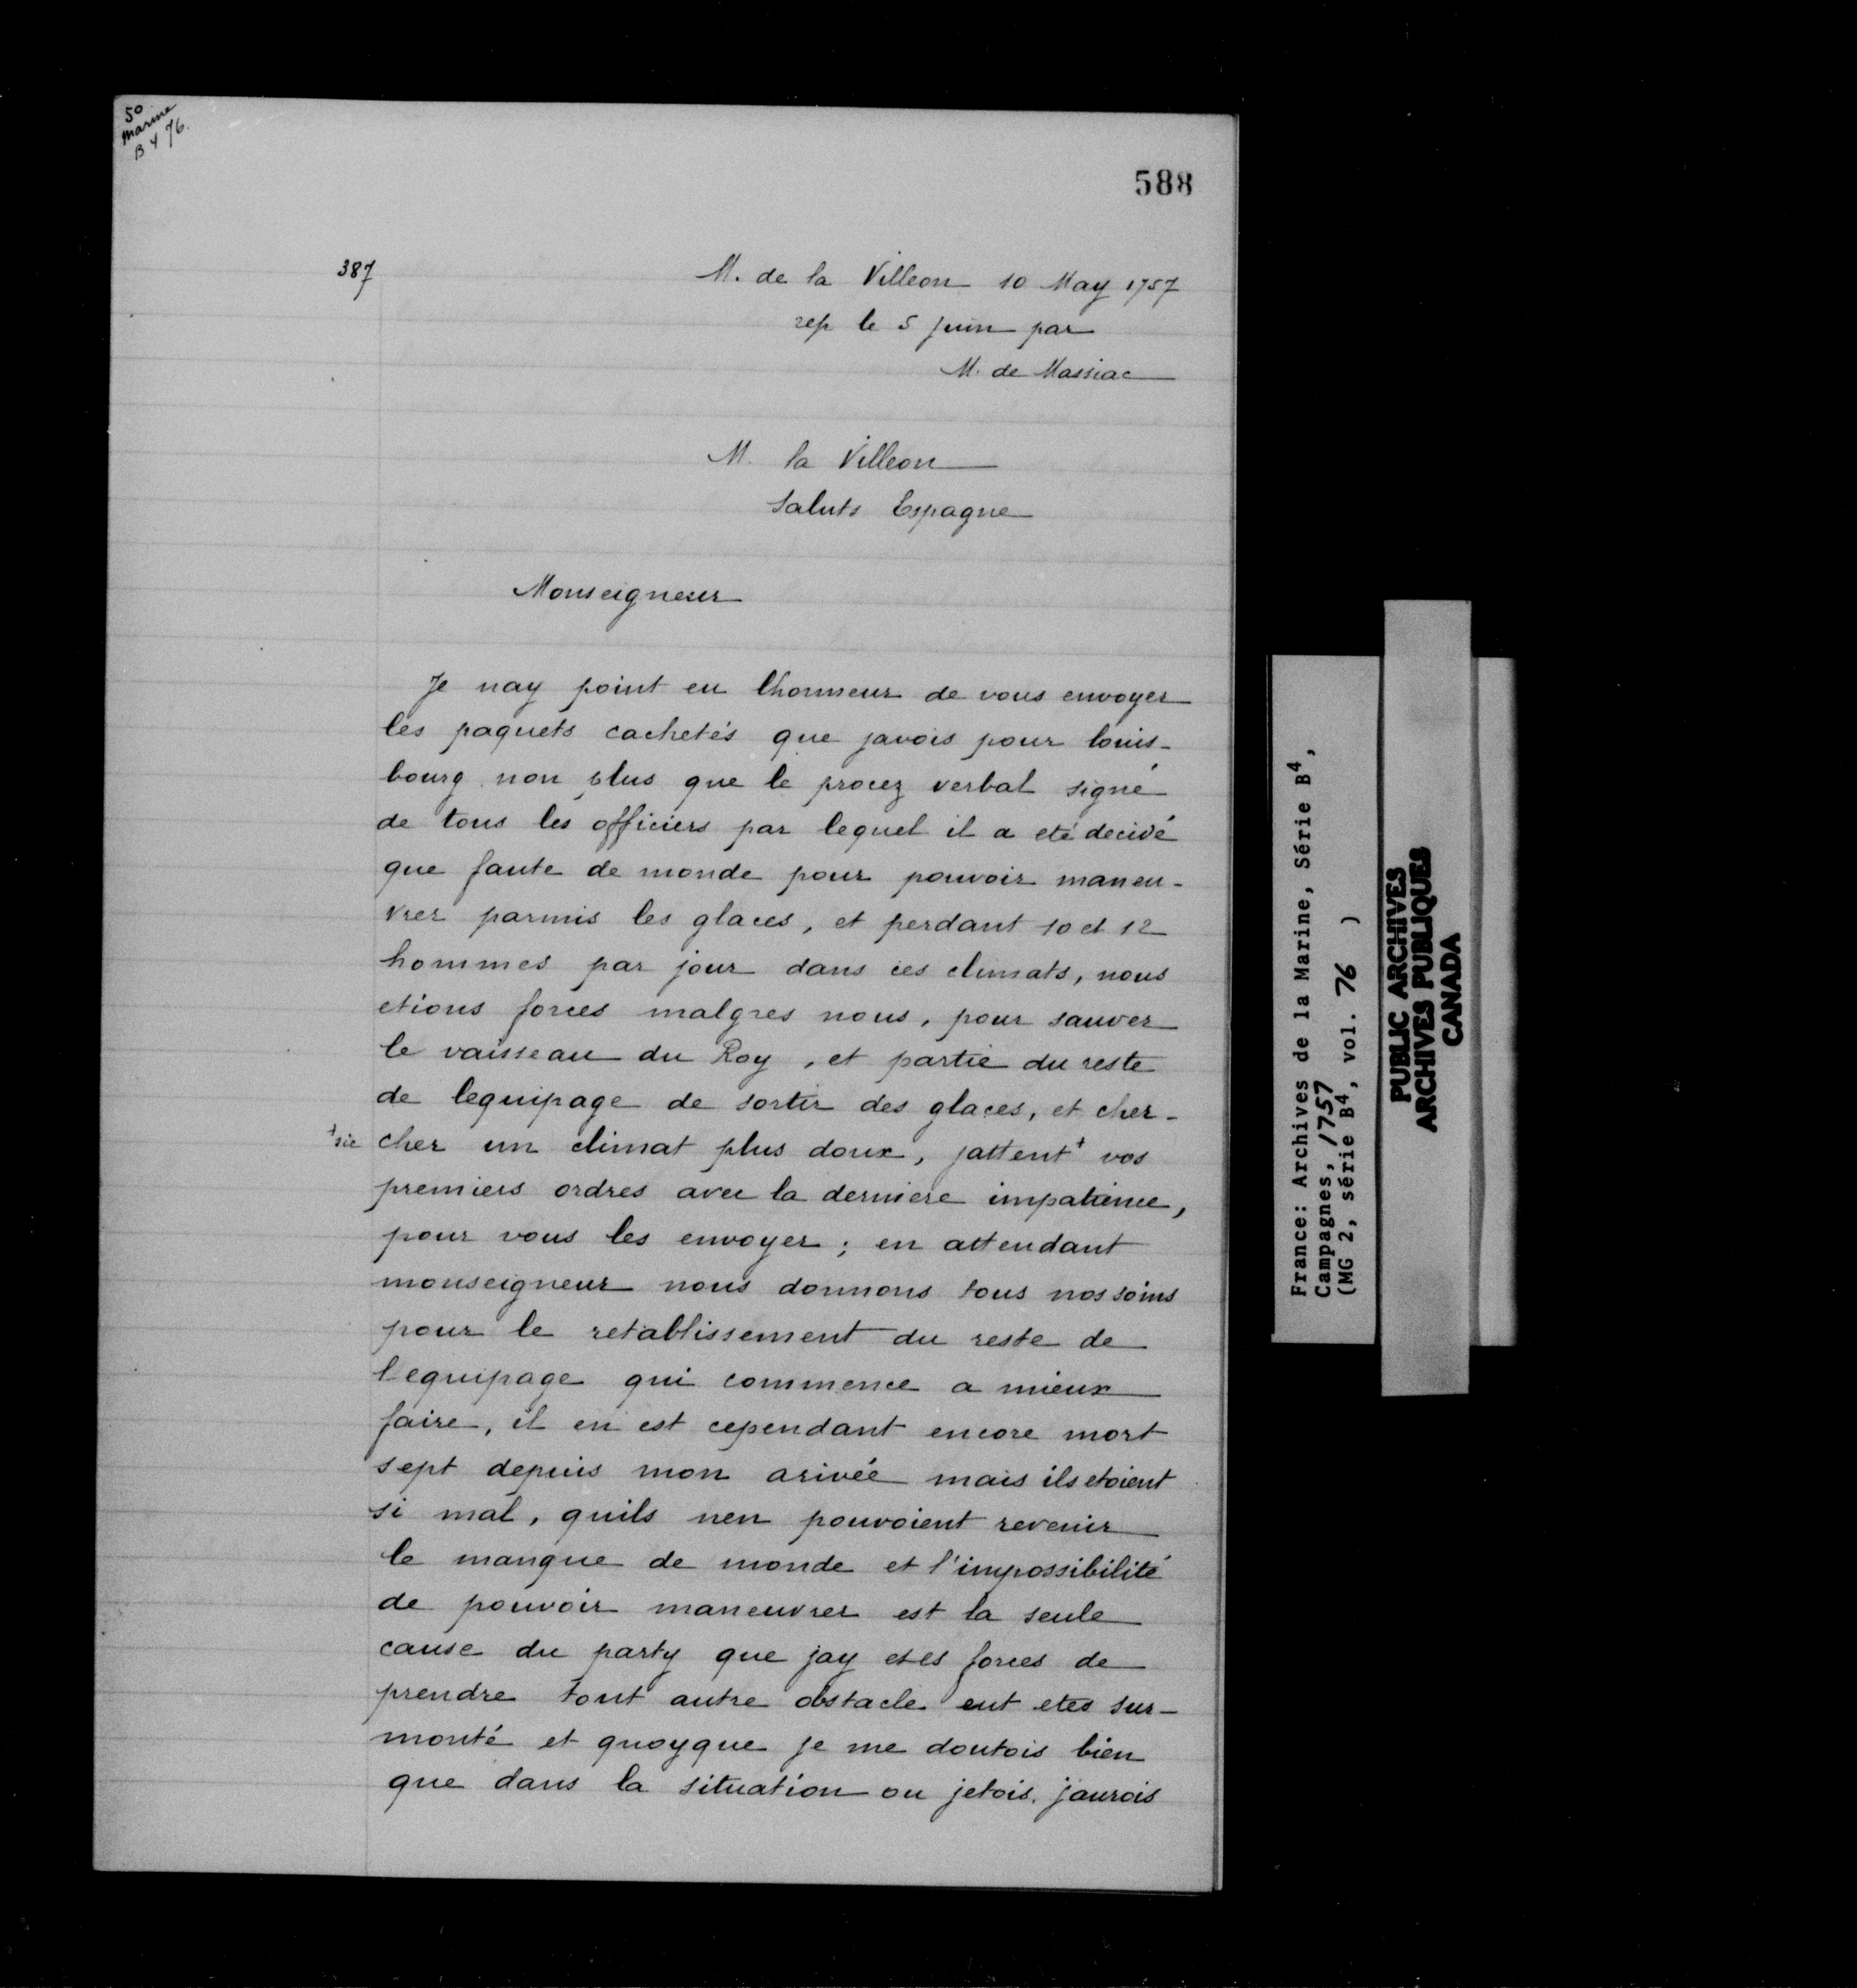 50
Marine
B 4 76.
588
387
M. de la Villeon 10 May 1757
rep le 5 Juin par
M. de Massiac
M. la Villeon
Saluts Espagne
Monseigneur
Je nay point eu lhonneur de vous envoyer
les paquets cachetés que javois pour louis-
bourg non plus que le procez verbal signé
de tous les officiers par lequel il a eté decidé
que faute de monde pour pouvoir maneu-
vrer parmis les glaces, et perdant 10 et 12
hommes par jour dans ces climats, nous
etions forcés malgres nous, pour sauver
le vaisseau du Roy, et partie du reste
de lequipage de sortir des glaces, et cher-
+sic cher un climat plus doux, jattent+ vos
premiers ordres avec la derniere impatience,
pour vous les envoyer; en attendant
monseigneur nous donnons tous nos soins
pour le retablissement du reste de
lequipage qui commence a mieux
faire, il en est cependant encore mort
sept depuis mon arivée mais ils etoient
si mal, quils nen pouvoient revenir
le manque de monde et l'impossibilité
de pouvoir maneuvrer est la seule
cause du party que jay etes forces de
prendre tout autre obstacle eut etes sur-
monté et quoyque je me doutois bien
que dans la situation ou jetois, jaurois
France: Archives de la Marine, Série B4,
Campagnes, 1757
(MG 2, série B4, vol. 76 )
PUBLIC ARCHIVES
ARCHIVES PUBLIQUES
CANADA